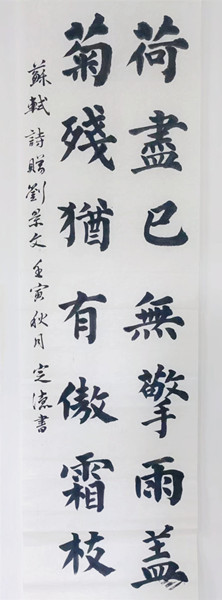 荷盡已無擎雨盖
菊殘猶有傲霜枝
蘇軾詩贈劉景文壬寅秋月定濤書